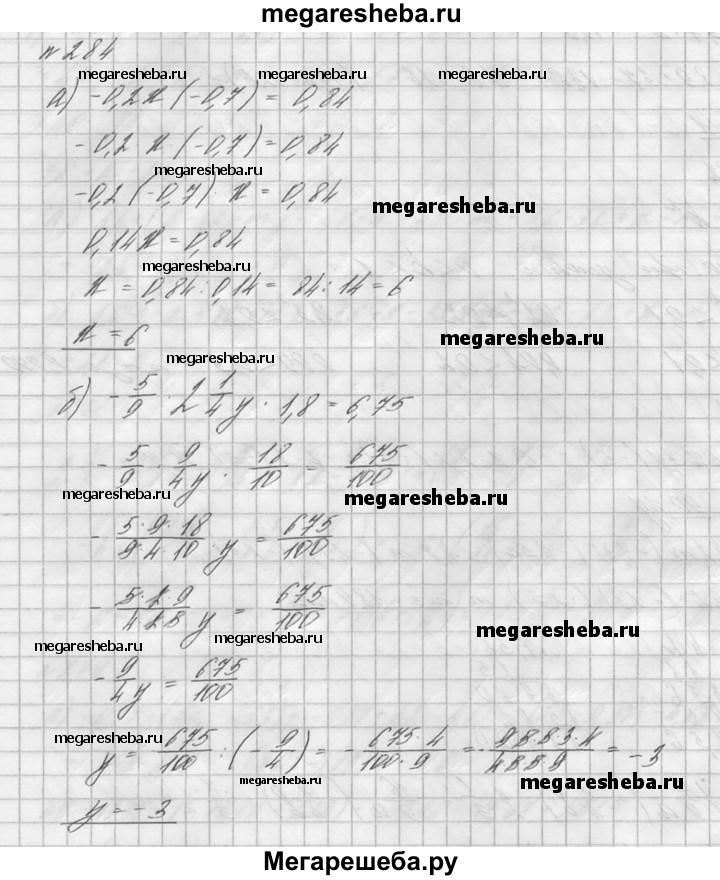 megaresheba.ru
№ 284
megaresheba.ru megaresheba.ru megaresheba.ru
а) -0,2 x (-0,7) = 0,84
-0,2 x (-0,7) = 0,84
megaresheba.ru
-0,2 (-0,7) · x = 0,84
megaresheba.ru
0,14x = 0,84
megaresheba.ru
x = 0,84 : 0,14 = 84 : 14 = 6
x = 6
megaresheba.ru
megaresheba.ru
б) - 5/9 · 2 1/4 y · 1,8 = 6,75
- 5/9 · 9/4 y · 18/10 = 675/100
megaresheba.ru megaresheba.ru
- 5·9·18/9·4·10 · y = 675/100
- 5·2·9/4·2·5 y = 675/100
megaresheba.ru megaresheba.ru megaresheba.ru
- 9/4 y = 675/100
megaresheba.ru
y = 675/100 : (- 9/4) = - 675·4/100·9 = = -3
megaresheba.ru megaresheba.ru
y = -3
Мегарешеба.ру